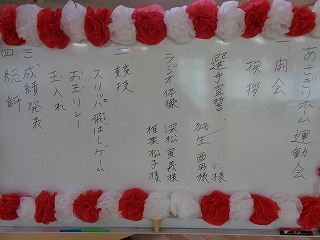 あさぎりホーム運動会
一.開会
挨拶 様
選手宣誓 西 様
ラジオ体操 深松 寅義様
椎葉 松子様
二 競技
スリッパ飛ばしゲーム
お玉リレー
玉入れ
三 成績発表
四 総評